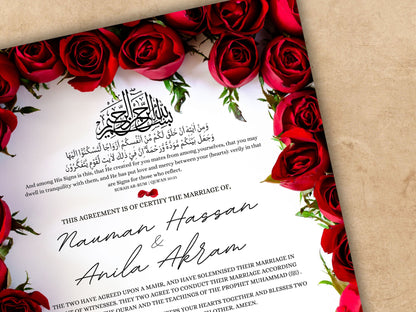 بسم الله الرحمن الرحيم
وَمِنْ آيَتِهِ أَنْ خَلَقَ لَكُم مِّنْ أَنفُسِكُمْ أَزْوَاجًا لِّتَسْكُنُوا إِلَيْهَا
وَجَعَلَ بَيْنَكُم مَّوَدَّةً وَرَحْمَةً إِنَّ فِي ذَلِكَ لَآيَتٍ لِّقَوْمٍ يَتَفَكَّرُونَ
And among His Signs is this, that He created for you mates from among yourselves, that you may
dwell in tranquility with them, and He has put love and mercy between your (hearts): verily in that
are Signs for those who reflect.
SURAH AR-RUM | QURAN 30:21
THIS AGREEMENT IS OF CERTIFY THE MARRIAGE OF,
Nauman Hassan
&
Anila Akram
THE TWO HAVE AGREED UPON A MAHR, AND HAVE SOLEMNISED THEIR MARRIAGE IN
OF WITNESSES. THEY TWO AGREE TO CONDUCT THEIR MARRIAGE ACCORDING
THE QURAN AND THE TEACHINGS OF THE PROPHET MUHAMMAD (ﷺ).
YOUR HEARTS TOGETHER AND BLESSES TWO
OTHER. AMEEN.